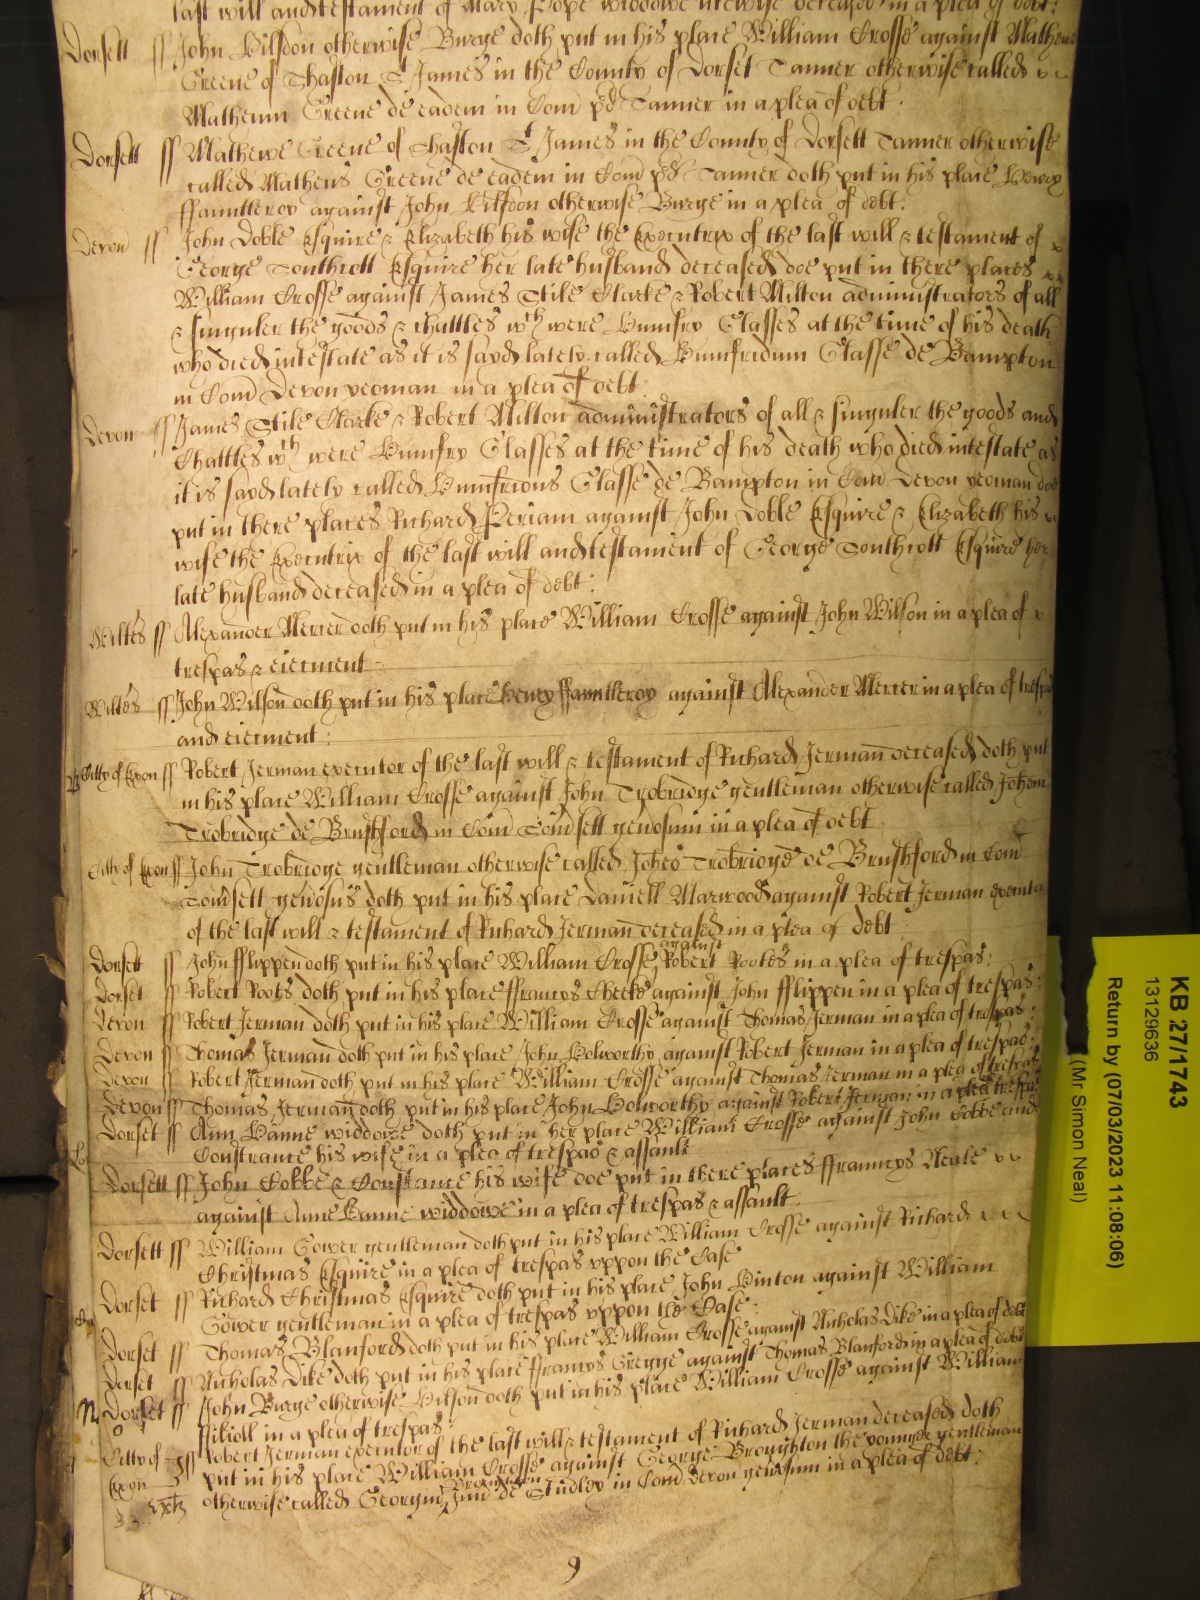 last will and testament of Mary Pope widdowe likewise deceased in a plea of debt:
Dorsett ss John Hilsdon otherwise Burge doth put in his place William Crosse against Mathew
Greene of Shaston St James in the County of Dorset Tanner otherwise called
Matheum Greene de eadem in Com pd Tanner in a plea of debt.
Dorsett ss Mathewe Greene of Shaston St James in the County of Dorsett Tanner otherwise
called Matheus Greene de eadem in Com pd Tanner doth put in his place Henry
ffauntleroy against John Hillson otherwise Burge in a plea of debt:
Devon ss John Doble Esquire & Elizabeth his wife the Executrix of the last will & testament of
George Southcott Esquire her late husband deceased doe put in there places
William Crosse against James Stile Clarke & Robert Milton administrators of all
& singuler the goods & chattles wch were Humfry Glasses at the time of his death
who died intestate as it is sayd lately called Humfridum Glasse de Bampton
in Com Devon yeoman in a plea of debt:
Devon ss James Stile Clarke & Robert Milton administrators of all & singuler the goods and
Chattles wch were Humfry Glasses at the time of his death who died intestate as
it is sayd lately called Humfridus Glasse de Bampton in Com Devon yeoman doe
put in there places Richard Periam against John Doble Esquire & Elizabeth his
wife the Executrix of the last will and testament of George Southcott Esquire her
late husband deceased in a plea of debt:
Wiltes ss Alexander Mercer doth put in his place William Crosse against John Wilson in a plea of
trespas & eiectment
Wiltes ss John Wilson doth put in his place Henry ffauntleroy against Alexander Mercer in a plea of trespas
and eiectment:
Citty of Exon ss Robert Jerman executor of the last will & testament of Richard Jerman deceased doth put
in his place William Crosse against John Trobridge gentleman otherwise called Johem
Trobridge de Brushford in Com Somsett genosum in a plea of debt
Citty of Exon ss John Trobridge gentleman otherwise called Johes Trobridge de Brushford in Com
Somsett genosus doth put in his place Daniell Marwood against Robert Jerman executor
of the last will & testament of Richard Jerman deceased in a plea of debt
Dorsett ss John fflippen doth put in his place William Crosse against Robert Rootes in a plea of trespas:
Dorset ss Robert Roots doth put in his place ffrancys Cheeke against John fflippen in a plea of trespas:
Devon ss Robert Jerman doth put in his place William Crosse against Thomas Jerman in a plea of trespas:
Devon ss Thomas Jerman doth put in his place John Holworthy against Robert Jerman in a plea of trespas:
Devon ss Robert Jerman doth put in his place William Crosse against Thomas Jerman in a plea of trespas
Devon ss Thomas Jerman doth put in his place John Holworthy against Robert Jerman in a plea trespas
Dorset ss Ann Hanne widdowe doth put in her place William Crosse against John Cobbe and
Constance his wife in a plea of trespas & assault
Dorsett ss John Cobbe & Constance his wife doe put in there places ffrancys Neale
against Anne Hanne widdowe in a plea of trespas & assault
Dorsett ss William Gower gentleman doth put in his place William Crosse against Richard
Christmas Esquire in a plea of trespas uppon the Case
Dorset ss Richard Christmas Esquire doth put in his place John Hinton against William
Gower gentleman in a plea of trespas uppon the Case:
Dorset ss Thomas Blanford doth put in his place William Crosse against Nicholas Dike in a plea of debt
Dorset ss Nicholas Dike doth put in his place ffrancys Gregge against Thomas Blanford in a plea of debt
Dorset ss John Burge otherwise Hilson doth put in his place William Crosse against William
in a plea of trespas:
Citty of Exon ss Robert Jerman executor of the last will & testament of Richard Jerman deceased doth
put in his place William Crosse against George Broughton the younger gentleman
otherwise called Georgium Broughton Jun de Studley in Com Devon genosum in a plea of debt:
9
KB 27/1743
13129636
Return by (07/03/2023 11:08:06)
(Mr Simon Neal)